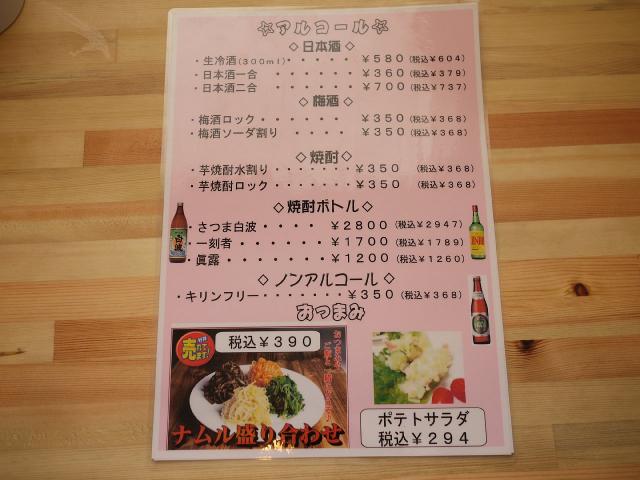 ☆アルコール☆
◇日本酒◇
・生冷酒(300ml)・・・・・ ￥580(税込￥604)
・日本酒一合 ・・・・・・ ￥360(税込￥379)
・日本酒二合 ・・・・・・ ￥700(税込￥737)
◇梅酒◇
・梅酒ロック・・・・・・ ￥350(税込￥368)
・梅酒ソーダ割り ・・・・ ￥350(税込￥368)
◇焼酎◇
・芋焼酎水割り・・・・・・・￥350 (税込￥368)
・芋焼酎ロック・・・・・・・￥350 (税込￥368)
◇焼酎ボトル◇
・さつま白波・・・・ ￥2800(税込￥2947)
・一刻者・・・・・・ ￥1700(税込￥1789)
・眞露・・・・・・・ ￥1200(税込￥1260)
◇ノンアルコール◇
・キリンフリー・・・・・￥350(税込￥368)
おつまみ
売れてます!
税込￥390
ナムル盛り合わせ
ポテトサラダ
税込￥294
白波